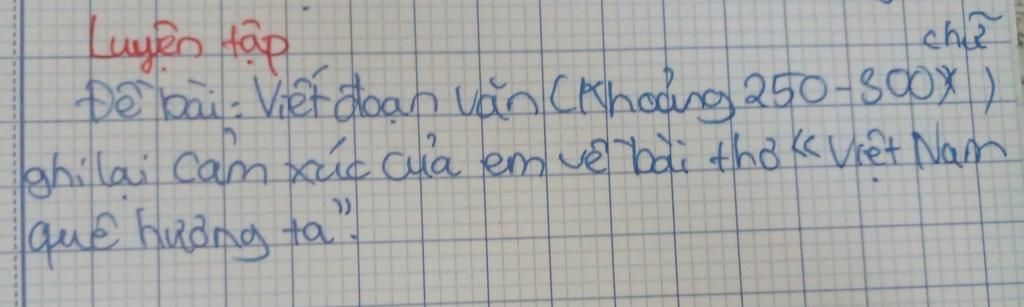 Luyện tập
chữ
Đề bài: Viết đoạn văn (Khoảng 250-300 )
ghi lại cảm xúc của em về bài thơ "Việt Nam
quê hương ta".